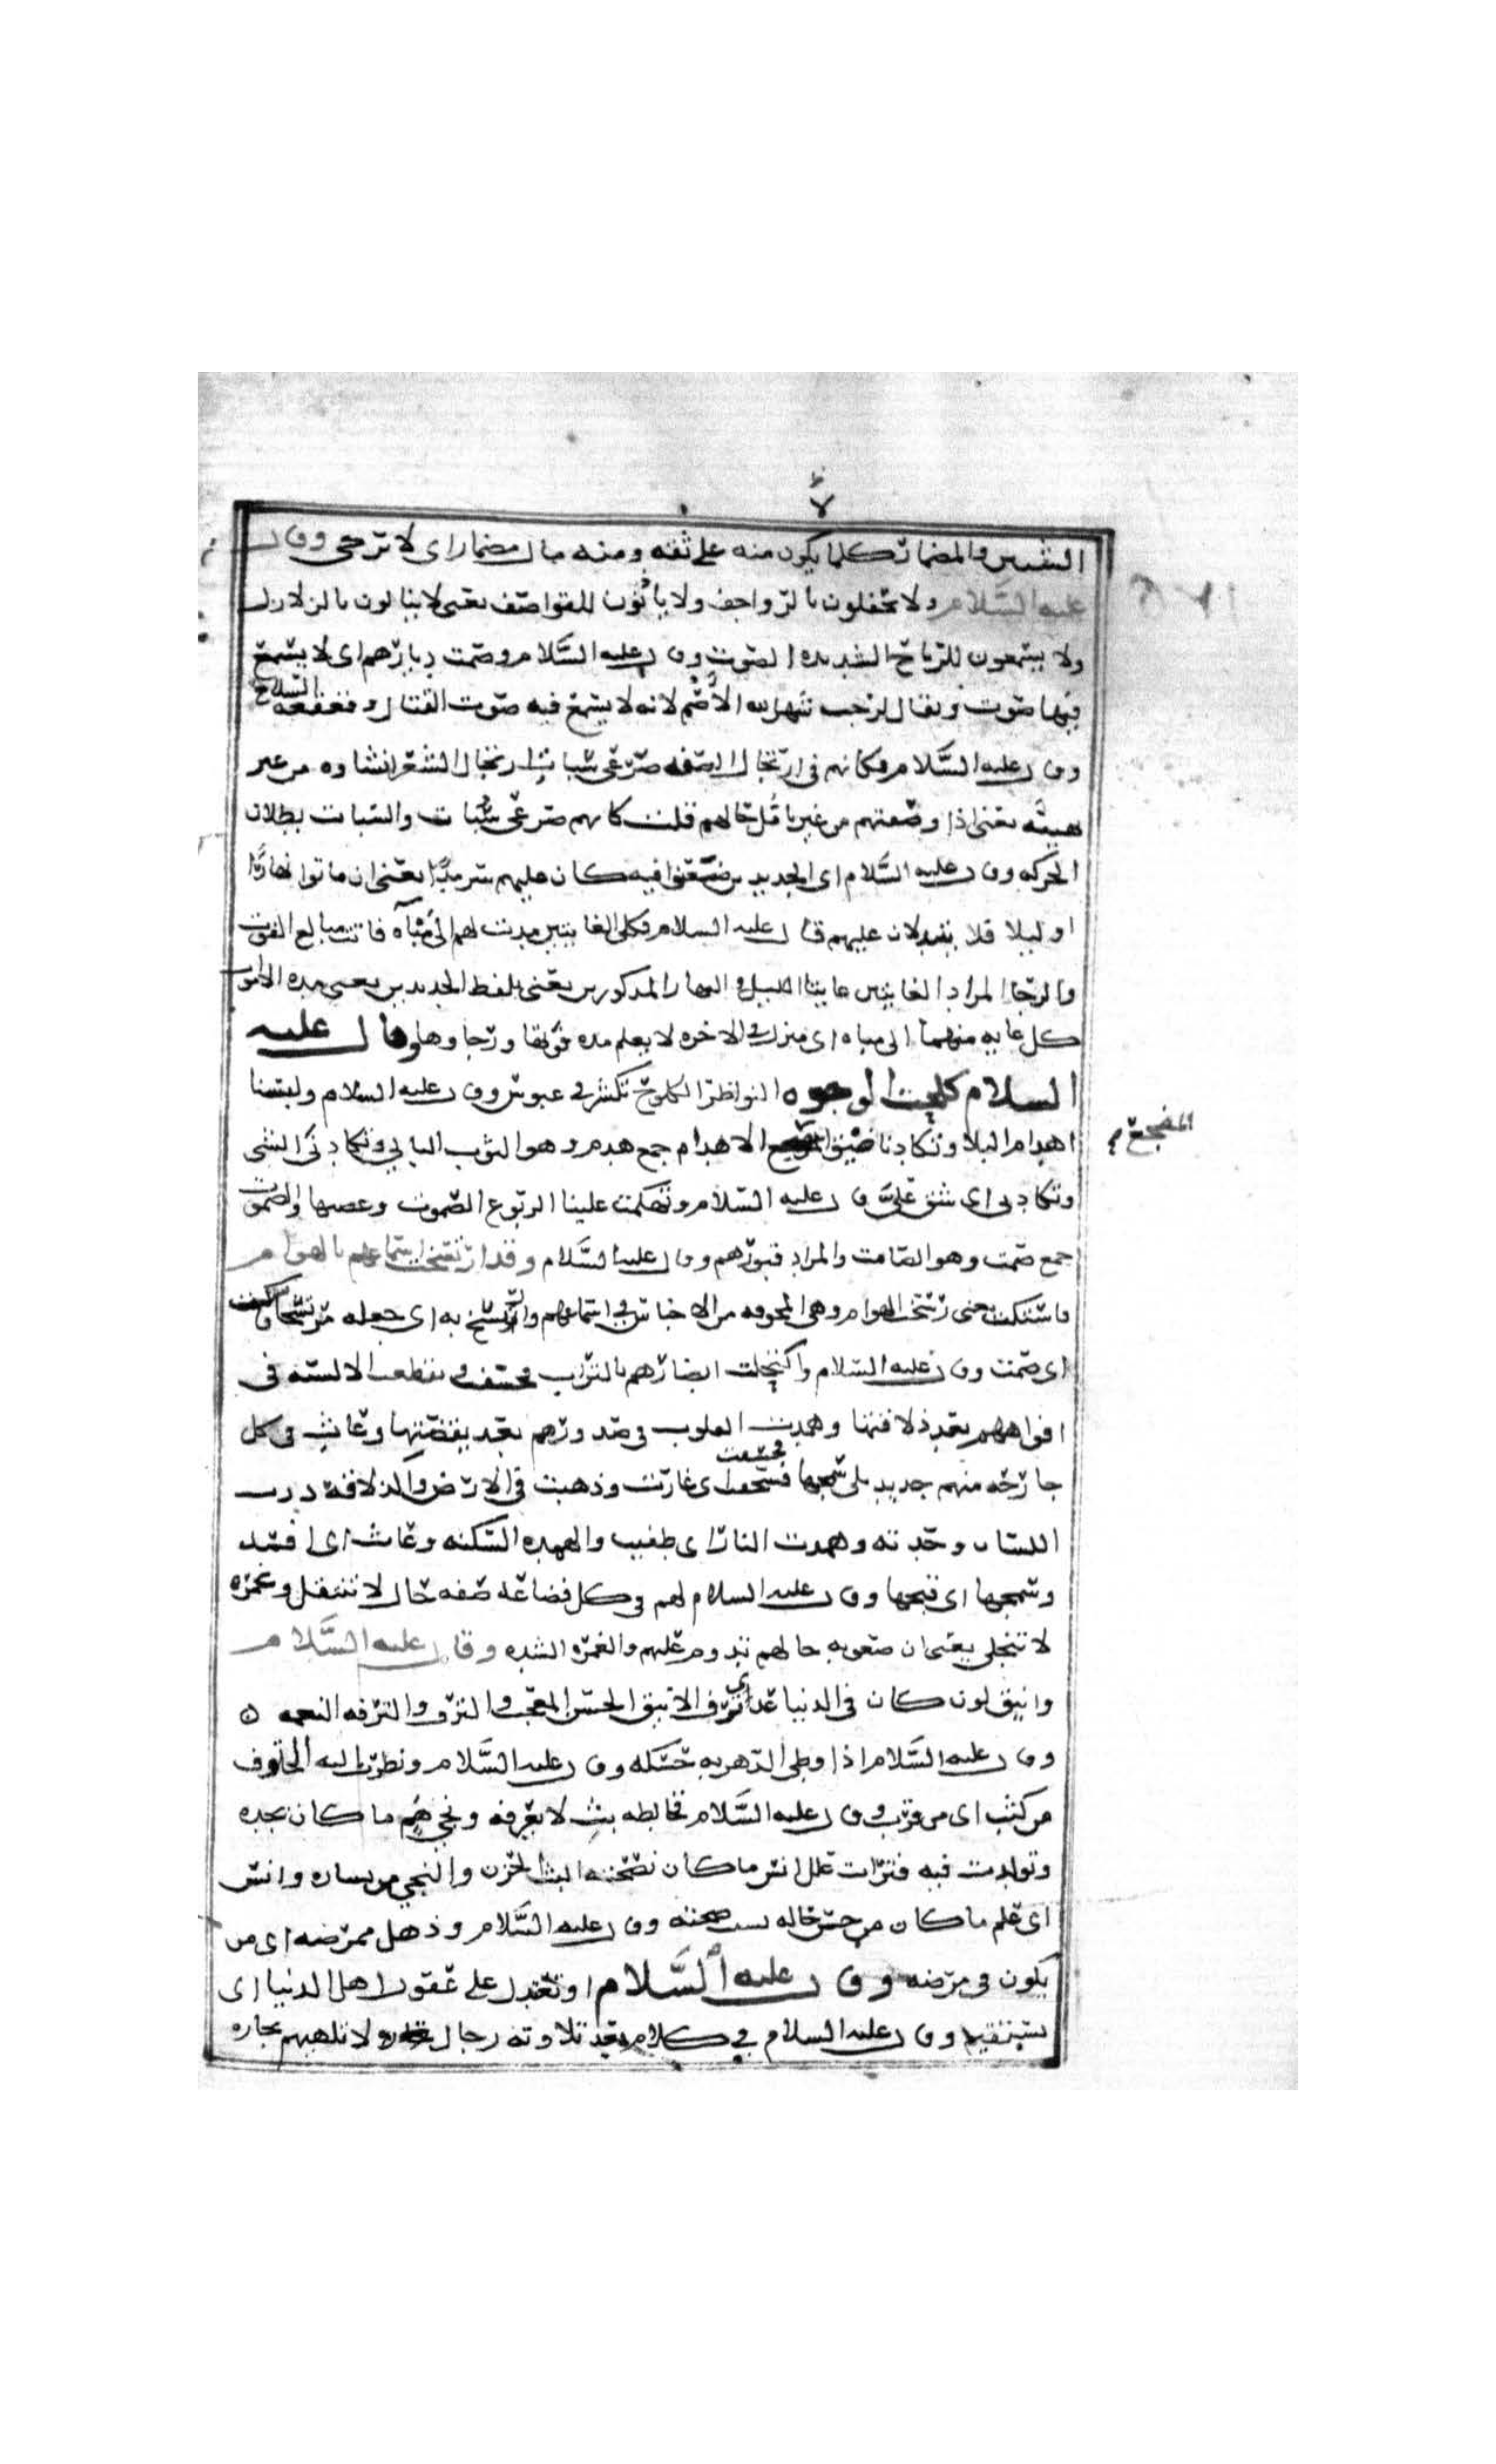 النفيس والمضمار كلما يكون منه على ثقه ومنه مال مضمار اى لا ترجى وقال
عليه السلام ولا يحفلون بالرواجف ولا يأذنون للقواصف يعنى لا يبالون بالزلازل
ولا يستمعون للرياح الشديده الصوت وقال عليه السلام وصمت ديارهم اى لا يسمع
فيها صوت ويقال لرجب شهر الله الأصم لانه لا يسمع فيه صوت القتال وقعقعه السلاح
وقال عليه السلام فكانهم فى ارتجال الصفه صرعى سبات ارتجال الشعر انشاده من غير
هيئه يعنى اذا وصفتهم من غير تأمل حالهم قلت كانهم صرعى سبات والسبات بطلان
الحركه وقال عليه السلام اى الجديدين ضعنوا فيه كان عليهم سرمدا يعنى ان ماتوا نهارا
او ليلا فلا يتبدلان عليهم قال عليه السلام فكلى الغايتين مدت لهم الى مباه فاتت مبالغ الخوف
والرجا المراد الغايتين غايتا الليل والنهار المذكورين يعنى بلفظ الجديدين يعنى مده الاموات
كل غايه منهما الى مباه اى منزل فى الاخره لا يعلم مده خوفها ورجاوها وقال عليه
السلام كلحت الوجوه النواظر الكلوح تكشر فى عبوس وقال عليه السلام ولبسنا
اهدام البلا وتكادنا ضيق المضجع الاهدام جمع هدم وهو الثوب البالى وتكادنى الشى
المضجع
وتكادنى اى شق على وقال عليه السلام وتهكمت علينا الربوع الصموت وغصها والصموت
جمع صمت وهو الصامت والمراد قبورهم وقال عليه السلام وقد ارتسخت اسماعهم بالهوام
فاستكت معنى رسخت الهوام وهى المخوفه من الاحناش فى اسماعهم وارتسخ به اى جعله مرتسخا واستكت
اى صمت وقال عليه السلام واكتحلت ابصارهم بالتراب فخسفت وتقطعت الالسنه فى
افواههم بعد ذلاقتها وهمدت القلوب فى صدورهم بعد يقضتها وعاث فى كل
جارحه منهم جديد بلى سمجها فخسفت اى غارت وذهبت فى الارض والذلاقه درب
اللسان وحدته وهمدت النار اى طفيت والهمده السكنه وعاث اى افسد
وسمجها اى قبحها وقال عليه السلام لهم فى كل فضاعه صفه حال لا تنتقل وغمره
لا تنجلى يعنى ان صعوبه حالهم تدوم عليهم والغمره الشده وقال عليه السلام
وانيق لون كان فى الدنيا غذى ترف الانيق الحسن المعجب والترف والترفه النعمه ه
وقال عليه السلام اذا وطى الدهر به حسكه وقال عليه السلام ونظرت اليه الحتوف
من كثب اى من قرب وقال عليه السلام فخالطه بث لا يعرفه ونجى هم ما كان يجده
وتولدت فيه فترات علل انس ما كان بصحته البث الحزن والنجى من يساره وانس
اى علم ما كان من حسن حاله بسبب صحته وقال عليه السلام وذهل ممرضه اى من
يكون فى مرضه وقال عليه السلام او تعتدل على عقول اهل الدنيا اى
يستقيم وقال عليه السلام فى كلام بعد تلاوته رجال لا تلهيهم تجاره